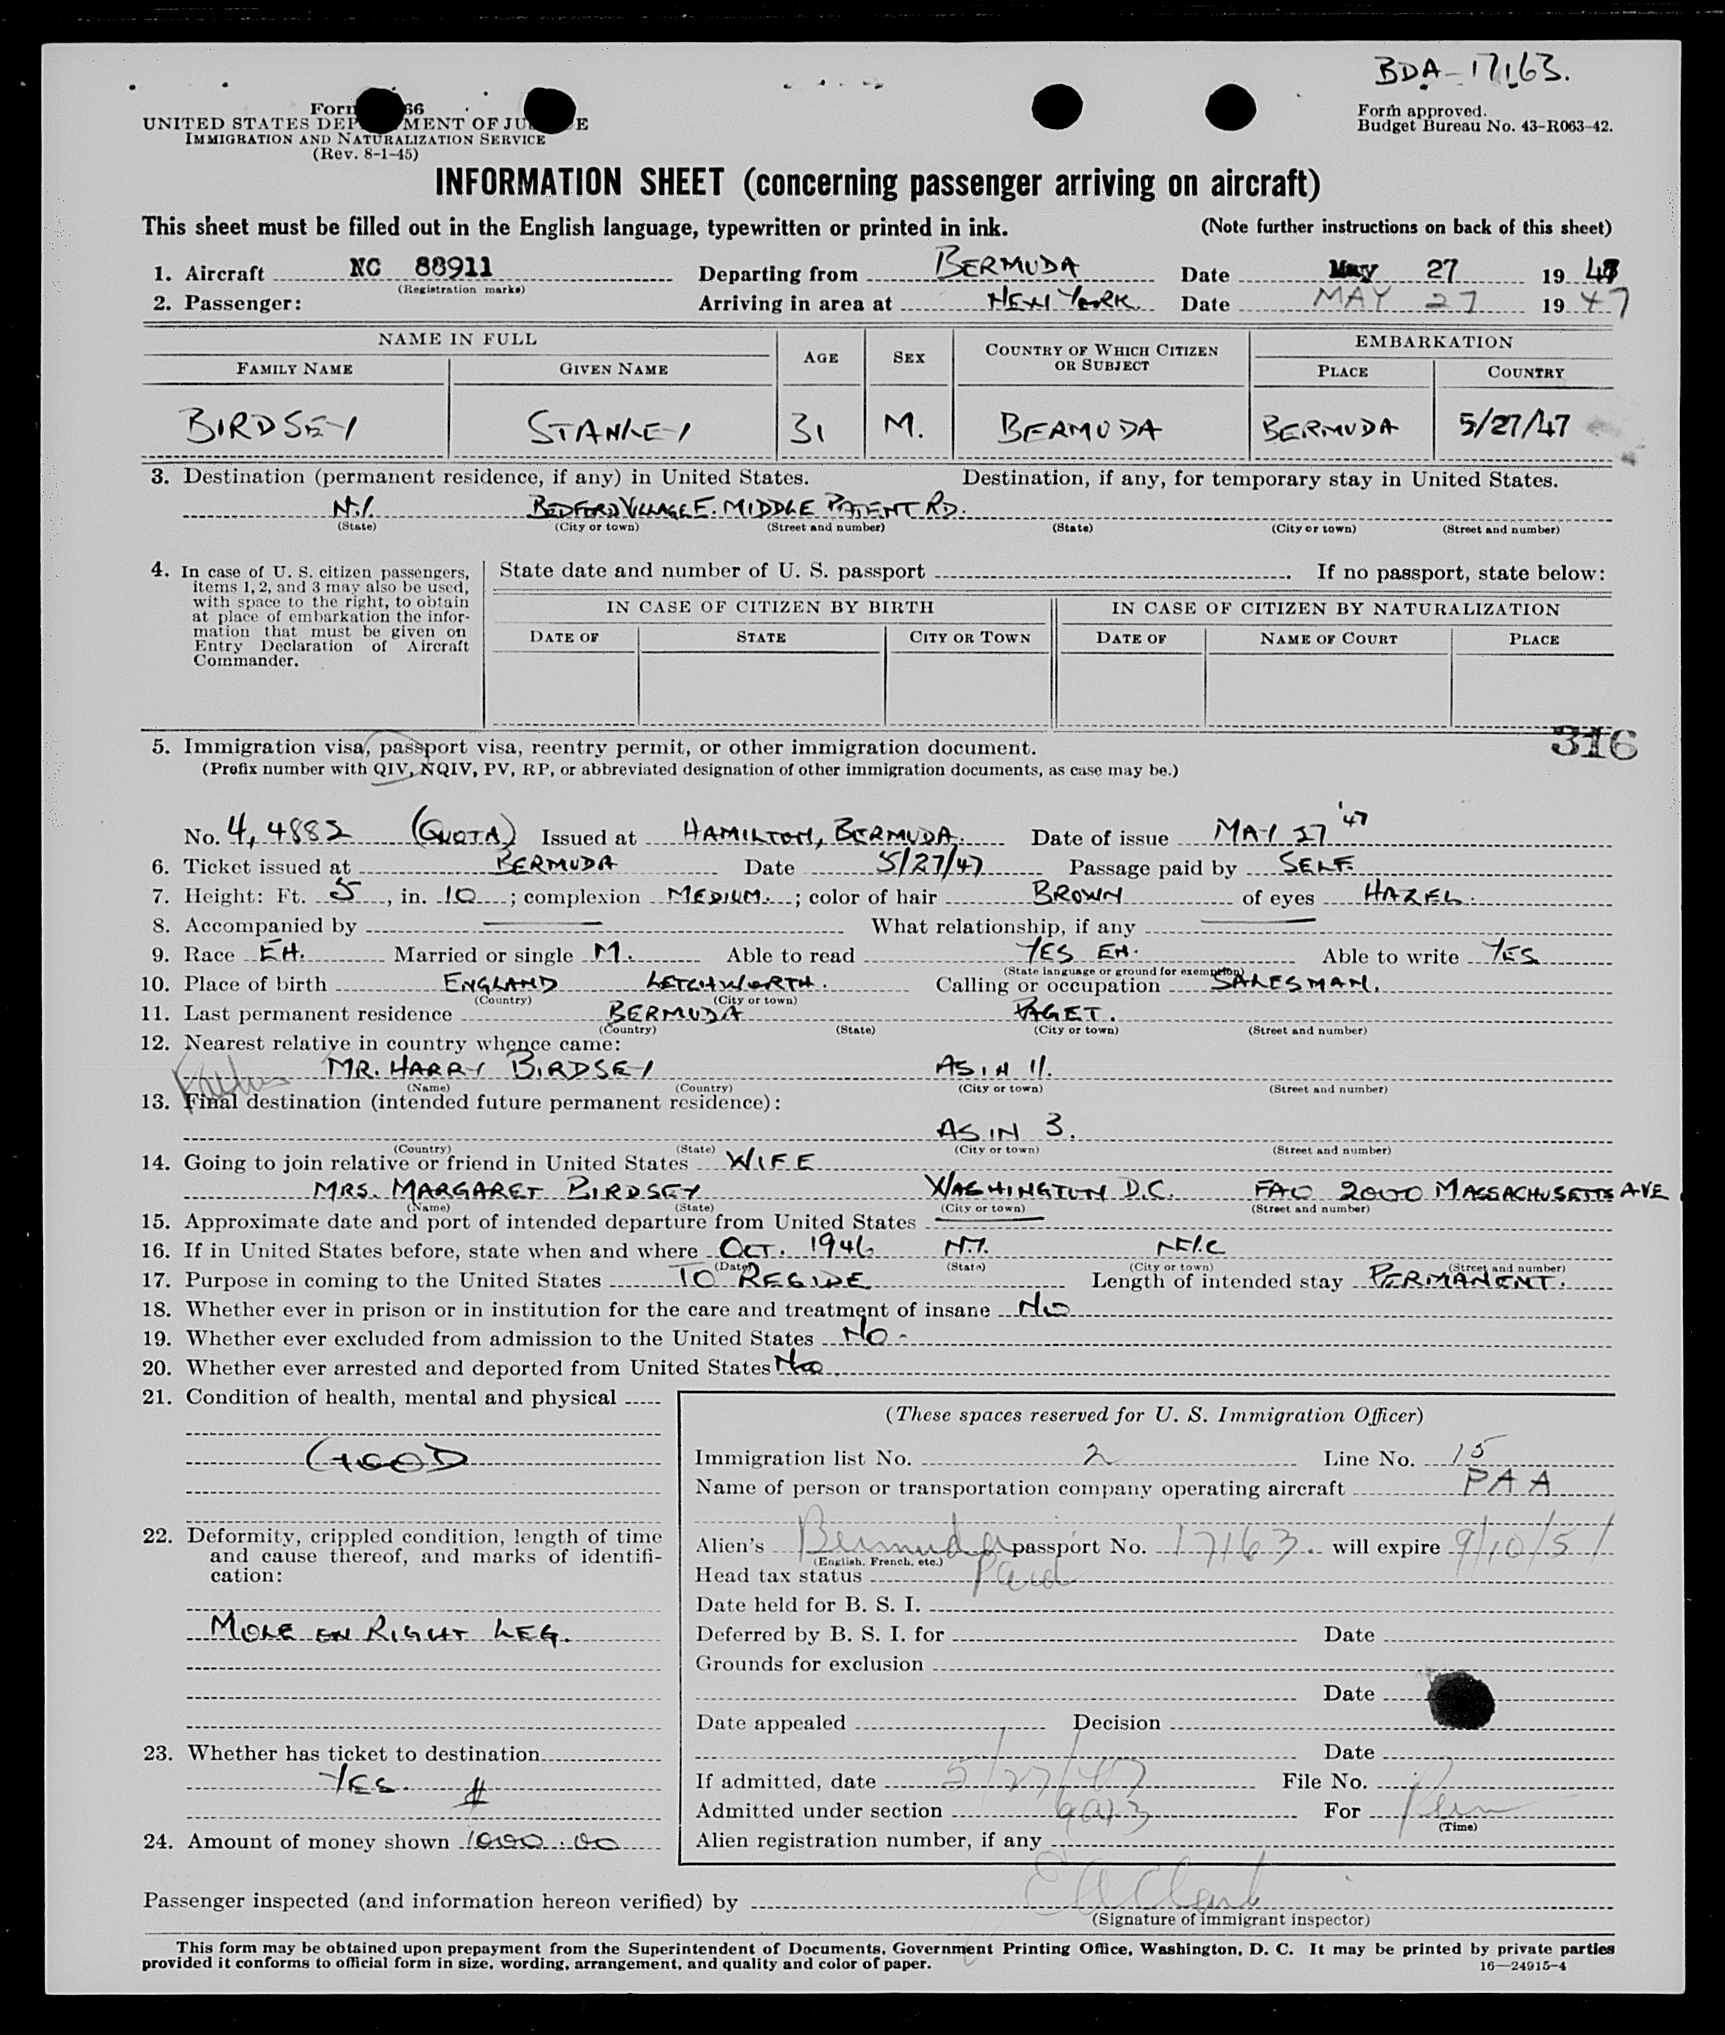 BDA-17163.
Form 66
UNITED STATES DEP MENT OF JU E
IMMIGRATION AND NATURALIZATION SERVICE
(Rev. 8-1-45)
Form approved.
Budget Bureau No. 43-R063-42.
INFORMATION SHEET (concerning passenger arriving on aircraft)
This sheet must be filled out in the English language, typewritten or printed in ink. (Note further instructions on back of this sheet)
1. Aircraft NC 88911 Departing from BERMUDA Date May 27 19 47
(Registration marks)
2. Passenger: Arriving in area at NEW YORK Date MAY 27 19 47
NAME IN FULL AGE SEX COUNTRY OF WHICH CITIZEN OR SUBJECT EMBARKATION
FAMILY NAME GIVEN NAME PLACE COUNTRY
BIRDSEY STANLEY 31 M. BERMUDA BERMUDA 5/27/47
3. Destination (permanent residence, if any) in United States. Destination, if any, for temporary stay in United States.
N.Y. BEDFORD VILLAGE E. MIDDLE PATENT RD.
(State) (City or town) (Street and number) (State) (City or town) (Street and number)
4. In case of U. S. citizen passengers, items 1, 2, and 3 may also be used, with space to the right, to obtain at place of embarkation the information that must be given on Entry Declaration of Aircraft Commander.
State date and number of U. S. passport . If no passport, state below:
IN CASE OF CITIZEN BY BIRTH IN CASE OF CITIZEN BY NATURALIZATION
DATE OF STATE CITY OR TOWN DATE OF NAME OF COURT PLACE
316
5. Immigration visa, passport visa, reentry permit, or other immigration document.
(Prefix number with QIV, NQIV, PV, RP, or abbreviated designation of other immigration documents, as case may be.)
No. 4,4882 (QUOTA) Issued at HAMILTON, BERMUDA. Date of issue MAY 27 '47
6. Ticket issued at BERMUDA Date 5/27/47 Passage paid by SELF.
7. Height: Ft. 5, in. 10; complexion MEDIUM.; color of hair BROWN of eyes HAZEL.
8. Accompanied by — What relationship, if any —
9. Race EH. Married or single M. Able to read YES EH. Able to write YES
(State language or ground for exemption)
10. Place of birth ENGLAND LETCHWORTH. Calling or occupation SALESMAN.
(Country) (City or town)
11. Last permanent residence BERMUDA PAGET.
(Country) (State) (City or town) (Street and number)
12. Nearest relative in country whence came:
Father MR. HARRY BIRDSEY AS IN 11.
(Name) (Country) (City or town) (Street and number)
13. Final destination (intended future permanent residence):
AS IN 3.
(Country) (State) (City or town) (Street and number)
14. Going to join relative or friend in United States WIFE
MRS. MARGARET BIRDSEY WASHINGTON D.C. FAO 2000 MASSACHUSETTS AVE
(Name) (State) (City or town) (Street and number)
15. Approximate date and port of intended departure from United States —
16. If in United States before, state when and where OCT. 1946 N.Y. NYC
(Date) (State) (City or town) (Street and number)
17. Purpose in coming to the United States TO RESIDE Length of intended stay PERMANENT.
18. Whether ever in prison or in institution for the care and treatment of insane NO
19. Whether ever excluded from admission to the United States NO -
20. Whether ever arrested and deported from United States NO
21. Condition of health, mental and physical
GOOD
22. Deformity, crippled condition, length of time and cause thereof, and marks of identification:
MOLE ON RIGHT LEG.
23. Whether has ticket to destination
YES. #
24. Amount of money shown 1000.00
(These spaces reserved for U. S. Immigration Officer)
Immigration list No. 2 Line No. 15
Name of person or transportation company operating aircraft PAA
Alien's Bermuda passport No. 17163. will expire 9/10/51
(English, French, etc.)
Head tax status Paid
Date held for B. S. I.
Deferred by B. S. I. for Date
Grounds for exclusion
Date
Date appealed Decision
Date
If admitted, date 5/27/47 File No.
Admitted under section 6(a)3 For Perm
(Time)
Alien registration number, if any
Passenger inspected (and information hereon verified) by E A Clark
(Signature of immigrant inspector)
This form may be obtained upon prepayment from the Superintendent of Documents, Government Printing Office, Washington, D. C. It may be printed by private parties
provided it conforms to official form in size, wording, arrangement, and quality and color of paper. 16—24915-4